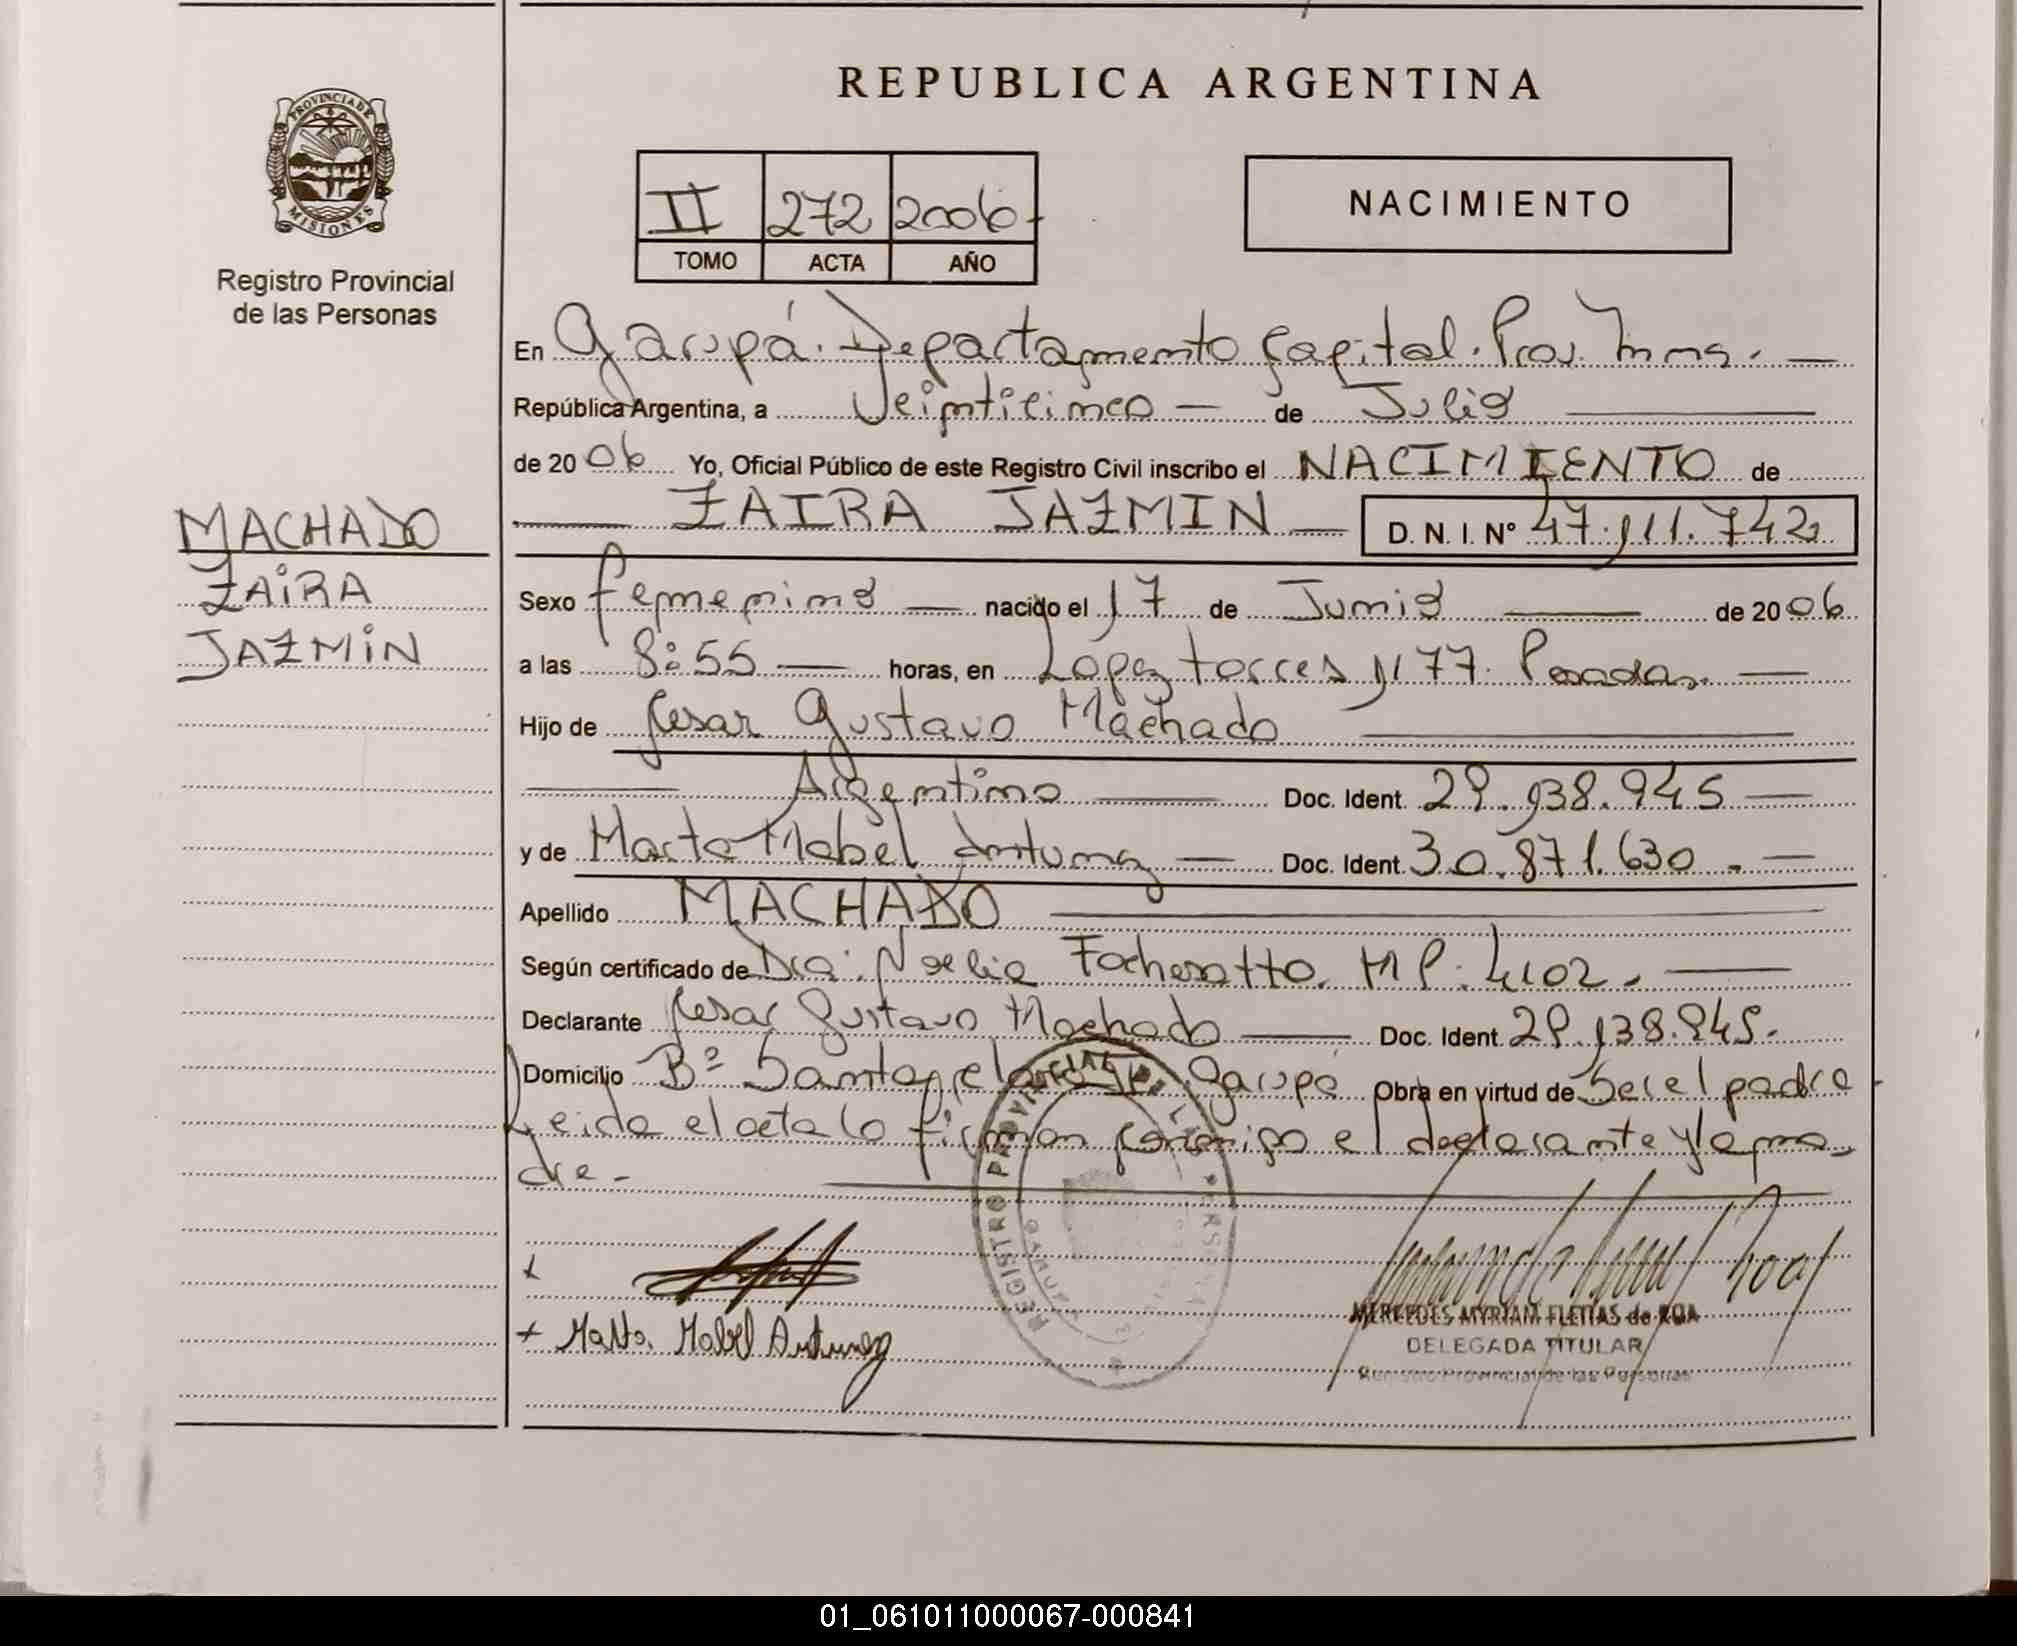 REPUBLICA ARGENTINA
PROVINCIA DE
MISIONES
Registro Provincial
de las Personas
II 272 2006
TOMO ACTA AÑO
NACIMIENTO
En Garupá. Departamento Capital. Prov. Mnes. —
República Argentina, a Veinticinco — de Julio
de 20 06 Yo, Oficial Público de este Registro Civil inscribo el NACIMIENTO de
ZAIRA JAZMIN — D. N. I. N° 47.111.742
MACHADO
ZAIRA
JAZMIN
Sexo femenino — nacido el 17 de Junio — de 20 06
a las 8:55 — horas, en Lopez torres 1177. Posadas. —
Hijo de Cesar Gustavo Machado
Argentino — Doc. Ident. 29.138.945 —
y de Marta Mabel Antunez — Doc. Ident. 30.871.630. —
Apellido MACHADO
Según certificado de Dra. Noelia Fochesatto. M P. 4102. —
Declarante Cesar Gustavo Machado — Doc. Ident. 29.138.945.
Domicilio Bº Santa Garupá Obra en virtud de Ser el padre
Leida el acta lo firman conmigo el declarante y la ma-
dre.-
REGISTRO PROVINCIAL DE LAS PERSONAS
GARUPA
Marta Mabel Antunez
MERCEDES MYRIAM FLEITAS de ROA
DELEGADA TITULAR
Registro Provincial de las Personas
01_061011000067-000841